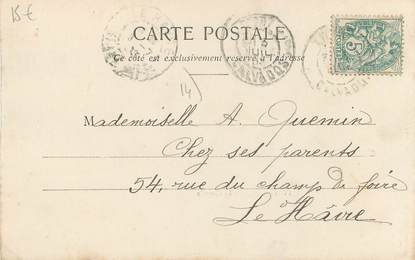 15 €
CARTE POSTALE
Ce côté est exclusivement réservé à l'adresse
CALVADOS
CALVADOS
5
14
Mademoiselle A. Quemin
Chez ses parents
54, rue du champ de foire
Le Hâvre